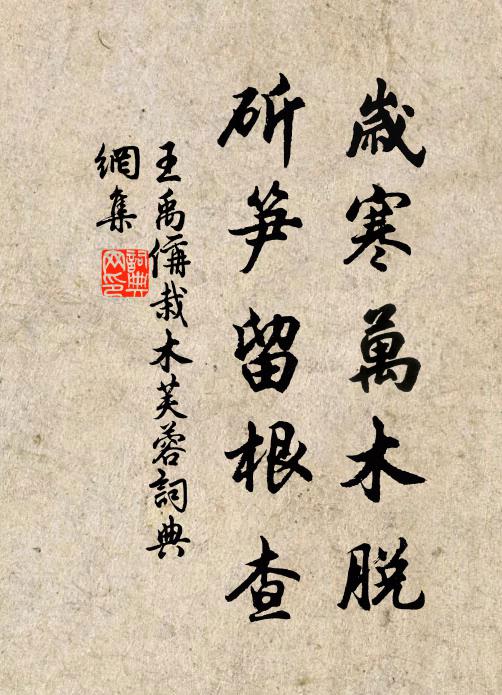 歲寒萬木脫
斫笋留根查
王禹偁栽木芙蓉詞典
網集
詞典网印